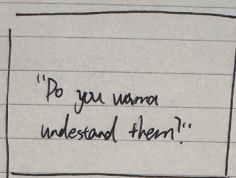 "Do you wanna
undestand them?"